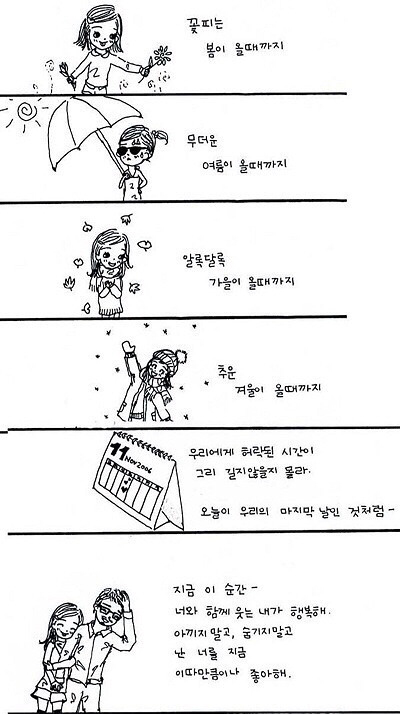 꽃피는
봄이 올때까지
무더운
여름이 올때까지
알록달록
가을이 올때까지
추운
겨울이 올때까지
11
Nov 2006
우리에게 허락된 시간이
그리 길지않을지 몰라.
오늘이 우리의 마지막 날인 것처럼-
지금 이 순간-
너와 함께 웃는 내가 행복해.
아끼지말고, 숨기지말고
난 너를 지금
이따만큼이나 좋아해.